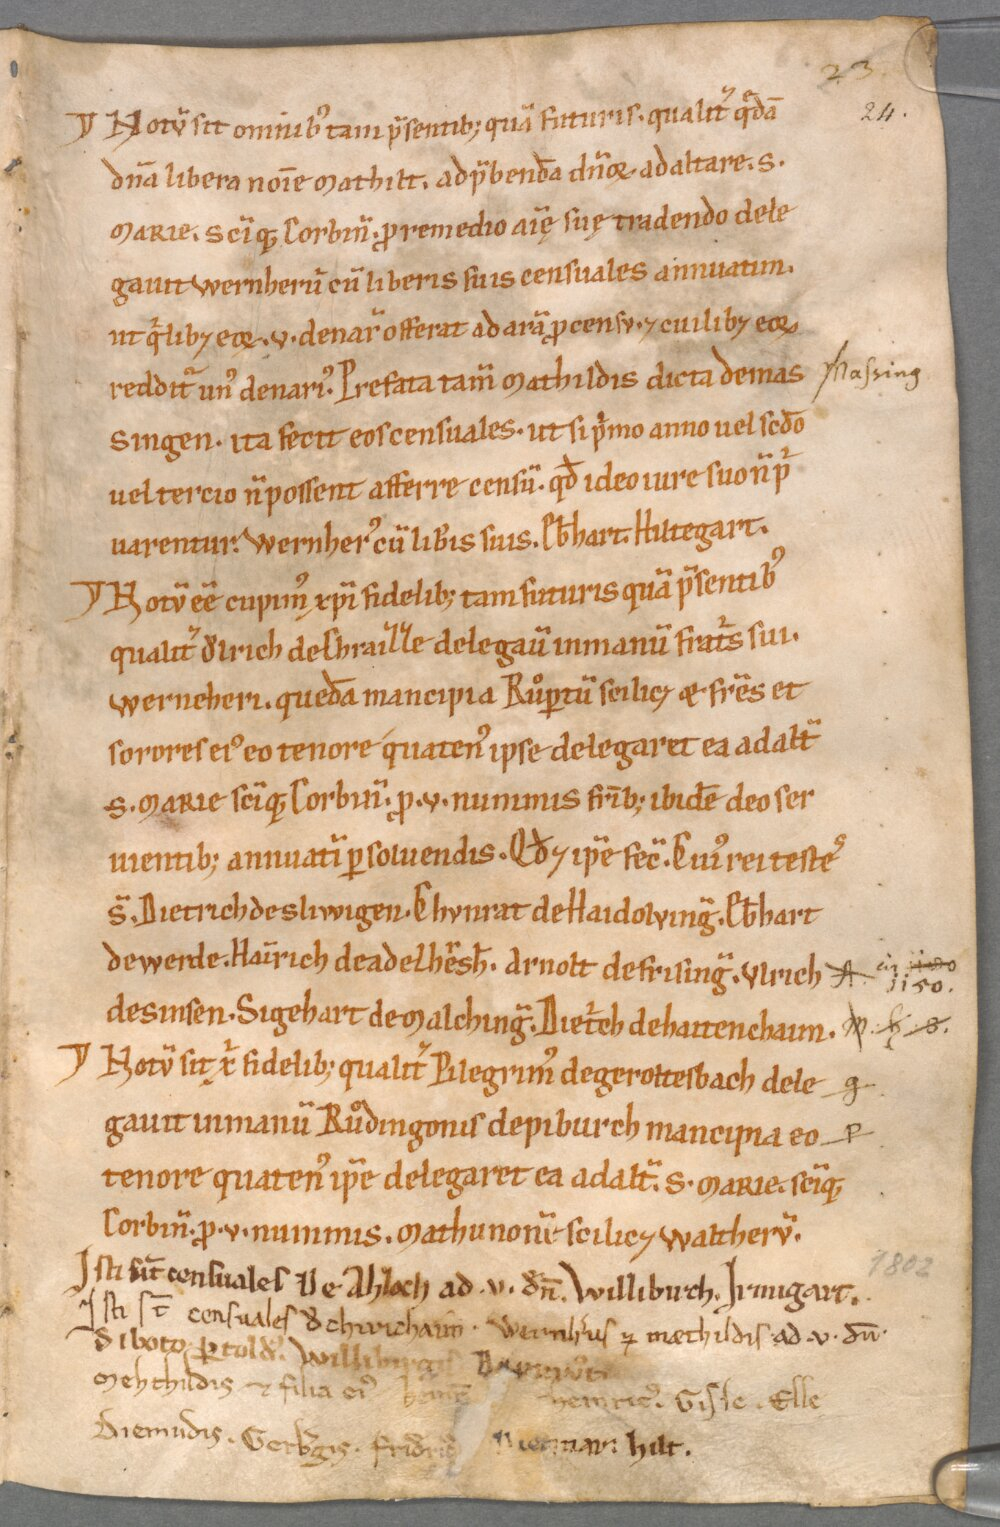 23
24.
y Notū sit omnib᷒ tam p̄sentib; quā futuris. qualit̾ q̄dā
dn̄a libera noīe Mathilt. ad p̄bendā dn̄oꝝ ad altare. S.
MARIE. sc̄iq; Corbin̄. ꝓ remedio aīę suę tradendo dele
gauit Wernherū cū liberis suis censuales annuatim.
ut q̄libꝫ eoꝝ .v. denar̄ offerat ad arā ꝓ censu. ⁊ cuilibꝫ eoꝝ
reddit̾ un᷒ denari᷒. Prefata tam̄ Mathildis dicta de Mas
singen. ita fecit eos censuales. ut si p̄mo anno uel scd̄o
Massing
uel tercio n̄ possent afferre censū. qd̄ ideo iure suo n̄ p̄
uarentur. Wernher᷒ cū lib̄is suis. Eb̄hart. Hiltegart.
y Notū eē cupim᷒ xp̄i fidelib; tam futuris quā p̄sentib᷒
qualit̾ Ꝟlrich de Chraille delegau̅ in manū frat̄s sui.
Werneheri. quedā mancipia Růꝑtū scilicꝫ & fr̄es et
sorores ei᷒ eo tenore quaten᷒ ipse delegaret ea ad alt̄
S. MARIE sc̄iq; Corbin̄. ꝓ .v. nummis fr̄ib; ibidē deo ser
uientib; annuatī ꝑsoluendis. Qd̄ ⁊ ip̄e fec̄. Cui᷒ rei teste᷒
s̄. Dietrich de sliwigen. Chvnrat de Haidoluinḡ. Eb̄hart
de werde. Hain̄rich de adelhēsh̄. Arnolt de frisinḡ. Vlrich
1150.
de sinsen. Sigehart de Malchinḡ. Diet̄ch de hattenchaim.
y Notū sit x̄ fidelib; qualit̾ Pilegrim᷒ de geroltesbach dele
gauit in manū Růdingonis de piburch mancipia eo
tenore quaten᷒ ip̄e delegaret ea ad alt̄. S. MARIE. sc̄iq;
Corbin̄. ꝓ .v. nummis. Mathunon̄ scilicꝫ Waltherū.
1802
Isti sūt censuales De Ahloch ad .v. dn̄. Williburch. Irmgart.
Isti st̄ censuales d̄ chirichaim. Wernhus ⁊ mæthildis ad .v. dn̄.
Diboto ꝑtold᷒. Williburgis
Mehthildis ⁊ filia ei᷒ heinric᷒. Gisle. Elle
Diemudis. Gerbgis. fridric᷒ Dietmar. hilt.